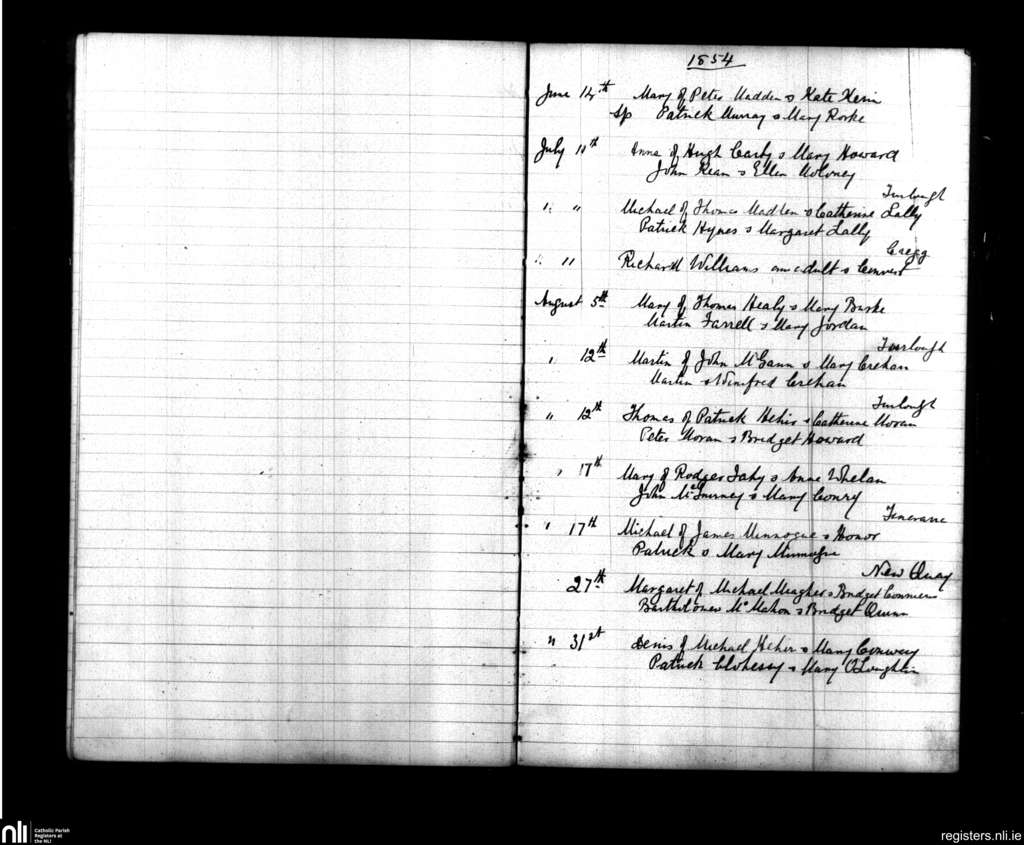 1854
June 14th Mary of Peter Madden & Kate
Sp Patrick Murray & Mary Rorke
July 11th Anna of Hugh Carty & Mary Howard
John Kean & Ellen Moloney
Turlough
" " Michael of Thomas Madden & Catherine Lally
Patrick Hynes & Margaret Lally
Cregg
" " Richard Williams an adult & Convert
August 5th Mary of Thomas Healy & Mary Burke
Martin Farrell & Mary Jordan
Turlough
" 12th Martin of John McGann & Mary Crehan
Martin & Winifred Crehan
Turlough
" 12th Thomas of Patrick Hehir & Catherine Moran
Peter Moran & Bridget Howard
" 17th Mary of Rodger Fahy & Anne Whelan
John & Mary Conry
Finevara
" 17th Michael of James Minnogue & Honor
Patrick & Mary
New Quay
27th Margaret of Michael Meagher & Bridget
Bartholomew McMahon & Bridget Quinn
" 31st Denis of Michael Hehir & Mary Conway
Patrick Clohessy & Mary O'Loughlin
nli
Catholic Parish
Registers at
the NLI
registers.nli.ie